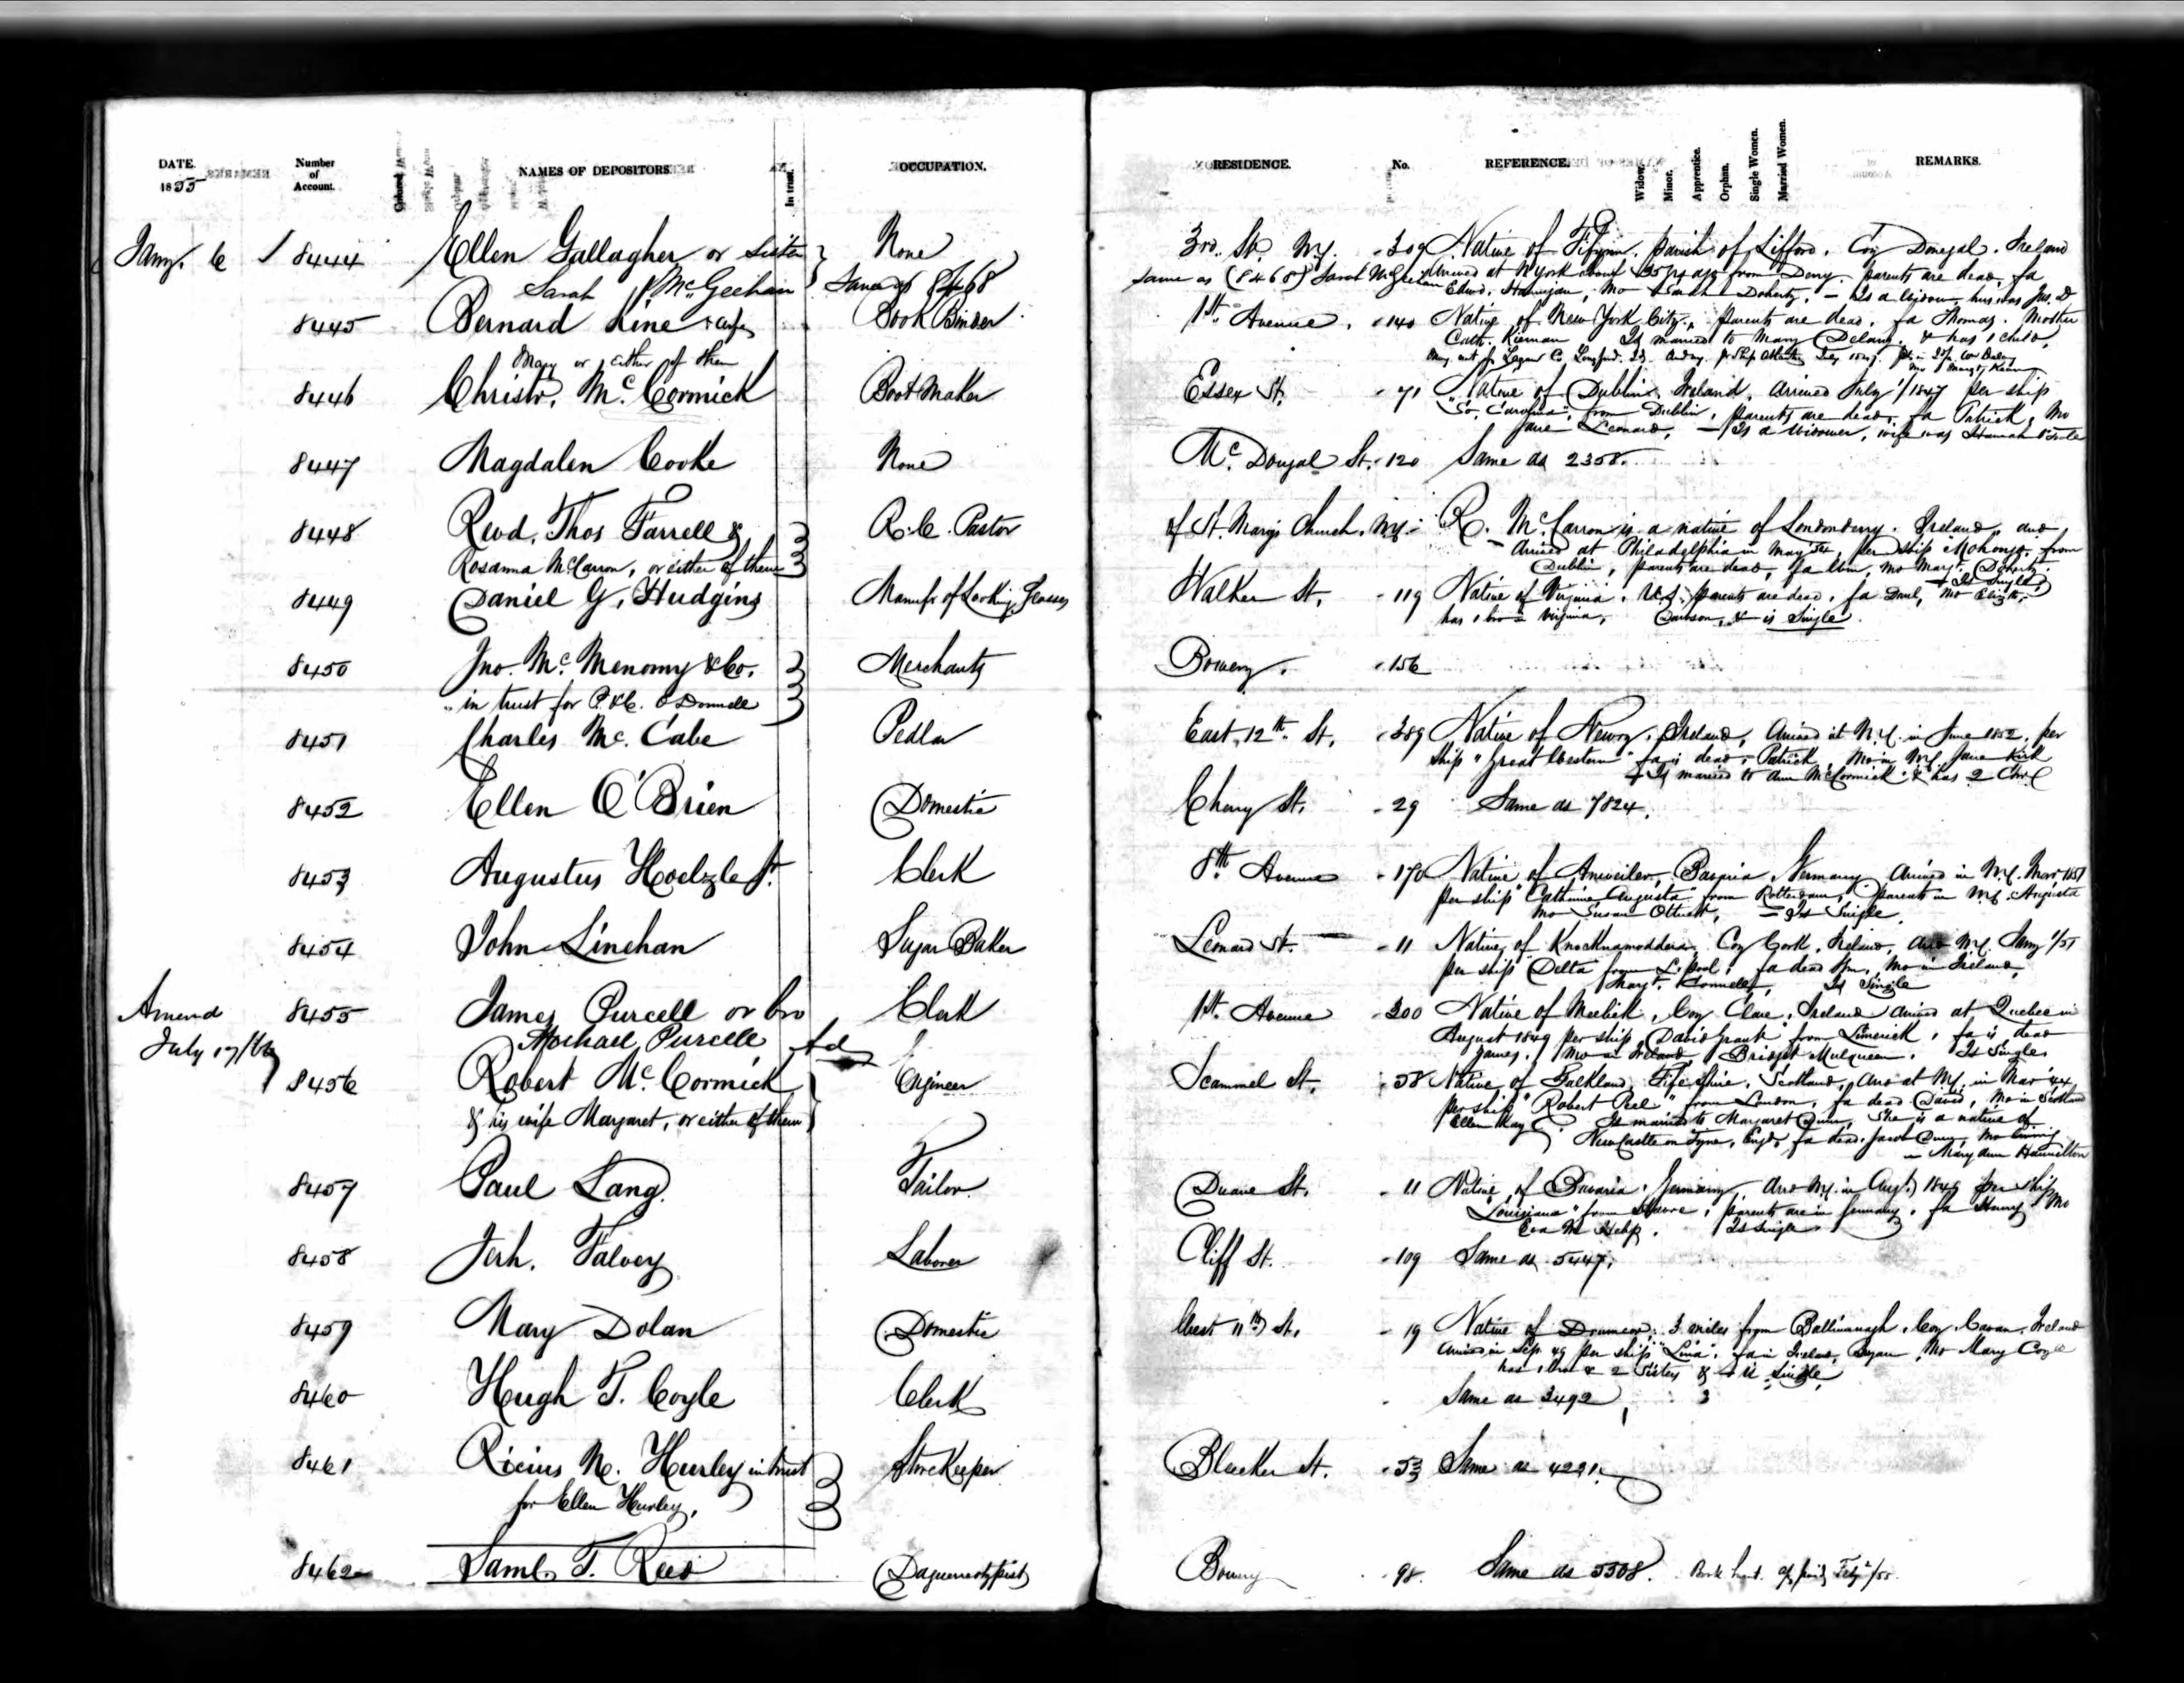 DATE. 1855
Number of Account.
NAMES OF DEPOSITORS.
In trust.
OCCUPATION.
RESIDENCE.
No.
REFERENCE.
Widow.
Minor.
Apprentice.
Orphan.
Single Women.
Married Women.
REMARKS.
Jany. 6 8444 Ellen Gallagher or Sister None 3rd. St. N.Y. 309 Native of parish of Lifford. Coy Donegal. Ireland
Sarah McGeehan Same as 8468 Same as (8468) Sarah McGeehan Arrived at N York about 25 yrs ago from Derry. parents are dead, fa
Edwd. Hannigan, Mo Sarah Doherty, — Is a Widow, hus was Jas. D
8445 Bernard Kine & wife Book Binder 1st. Avenue. 140 Native of New York City. parents are dead. fa Thomas. Mother
Mary or either of them Cath. Kiernan Is married to Mary Delany. & has 1 child.
8446 Christr. Mc.Cormick Boot Maker Essex St. 71 Native of Dublin. Ireland. arrived July 1/1847 per ship
"So. Carolina" from Dublin. parents are dead, fa Patrick, Mo
Jane Leonard, — Is a Widower, wife was Hannah
8447 Magdalen Cooke None Mc.Dougal St. 120 Same as 2358.
8448 Revd. Thos Farrell & R.C. Pastor of St. Mary's Church. N.Y. R. McCarron is a native of Londonderry. Ireland, and
Rosanna McCarron, or either of them Arrived at Philadelphia in May 54, per ship Mohongo. from
Dublin, parents are dead, fa Wm, mo Margt. Doherty.
Is Single
8449 Daniel G. Hudgins Manufr of Looking Glasses Walker St. 119 Native of Virginia. U.S. parents are dead. fa Danl, Mo Elizth.
has 1 bro in Virginia, & is Single.
8450 Jno. Mc.Menomy & Co. Merchants Bowery. 156
in trust for P. & C. O Donnell
8451 Charles Mc.Cabe Pedlar East 12th. St. 389 Native of Newry. Ireland, Arrived at N.Y. in June 1852. per
ship "Great Western" fa is dead, Patrick, Mo in N.Y. Jane Kirk
Is married to Ann McCormick & has 2 Chn.
8452 Ellen O'Brien Domestic Cherry St. 29 Same as 7824.
8453 Augustus Hoelzle Jr. Clerk 8th Avenue 170 Native of Anweiler, Bavaria Germany Arrived in N.Y. Mar 1851
per ship "Catherine Augusta" from Rotterdam, parents in N.Y. Augusta
mo Susan — Is Single.
8454 John Linehan Sugar Baker Leonard St. 11 Native of Knocknamoddera, Coy Cork, Ireland, Arrd N.Y. Jany 1/51
per ship "Delta" from L.pool. fa dead Wm, Mo in Ireland,
Margt. Connelly, Is Single
Amend 8455 James Purcell or bro Clerk 1st. Avenue 300 Native of Meelick, Coy Clare, Ireland Arrived at Quebec in
July 17/66 Michael Purcell August 1849 per ship "David Grant" from Limerick. fa is dead
James. Mo in Ireland, Bridget Mulqueen. Is Single
8456 Robert Mc.Cormick Engineer Scammel St. 58 Native of Falkland, Fifeshire, Scotland, Arrd at N.Y. in Mar '44
& his wife Margaret, or either of them per ship "Robert Peel" from London, fa dead David, Mo in Scotland
Ellen Kay. Is married to Margaret, She is a native of
Newcastle on Tyne, Engd. fa dead. Jacob, Mo living
— Mary Ann Hamilton
8457 Paul Lang. Tailor. Duane St. 11 Native of Bavaria. Germany, Arrd N.Y. in Augt. 1846 per ship
"Louisiana" from Havre, parents are in Germany. fa Henry Mo
Eva M. Is Single
8458 Jerh. Falvey Laborer Cliff St. 109 Same as 5447.
8459 Mary Dolan Domestic West 11th St. 19 Native of 3 miles from Ballinanagh. Coy. Cavan. Ireland
Arrived in Sep. 49 per ship "Lina". fa in Ireland, Bryan, Mo Mary Coyle
has 1 bro & 2 Sisters & is Single
8460 Hugh T. Coyle Clerk Same as 3492
8461 Ricius N. Hurley in trust Store Keeper Bleecker St. 53 Same as 4291.
for Ellen Hurley.
8462 Saml. T. Reed Daguerreotypist Bowery 98. Same as 5308. Book lost. Feby 2/55.